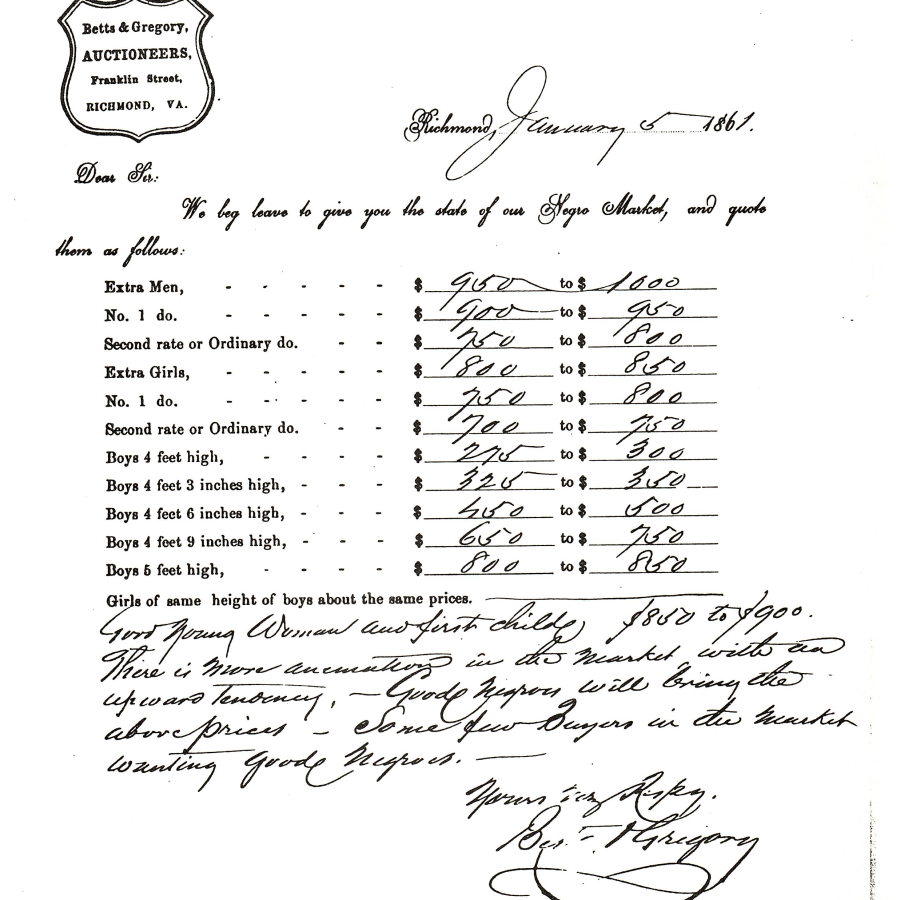 Betts & Gregory,
AUCTIONEERS,
Franklin Street,
RICHMOND, VA.
Richmond, January 5 1861.
Dear Sir:
We beg leave to give you the state of our Negro Market, and quote
them as follows:
Extra Men, - - - - - $ 950 to $ 1000
No. 1 do. - - - - - $ 900 to $ 950
Second rate or Ordinary do. - - $ 750 to $ 800
Extra Girls, - - - - - $ 800 to $ 850
No. 1 do. - - - - - $ 750 to $ 800
Second rate or Ordinary do. - - $ 700 to $ 750
Boys 4 feet high, - - - - $ 275 to $ 300
Boys 4 feet 3 inches high, - - - $ 325 to $ 350
Boys 4 feet 6 inches high, - - - $ 450 to $ 500
Boys 4 feet 9 inches high, - - - $ 650 to $ 750
Boys 5 feet high, - - - - $ 800 to $ 850
Girls of same height of boys about the same prices.
Good Young Woman and first child, $850 to $900.
There is more animation in the market with an
upward tendency, - Good Negroes will bring the
above prices - Some few Buyers in the market
wanting Good Negroes. -
Yours Respy.
Gregory